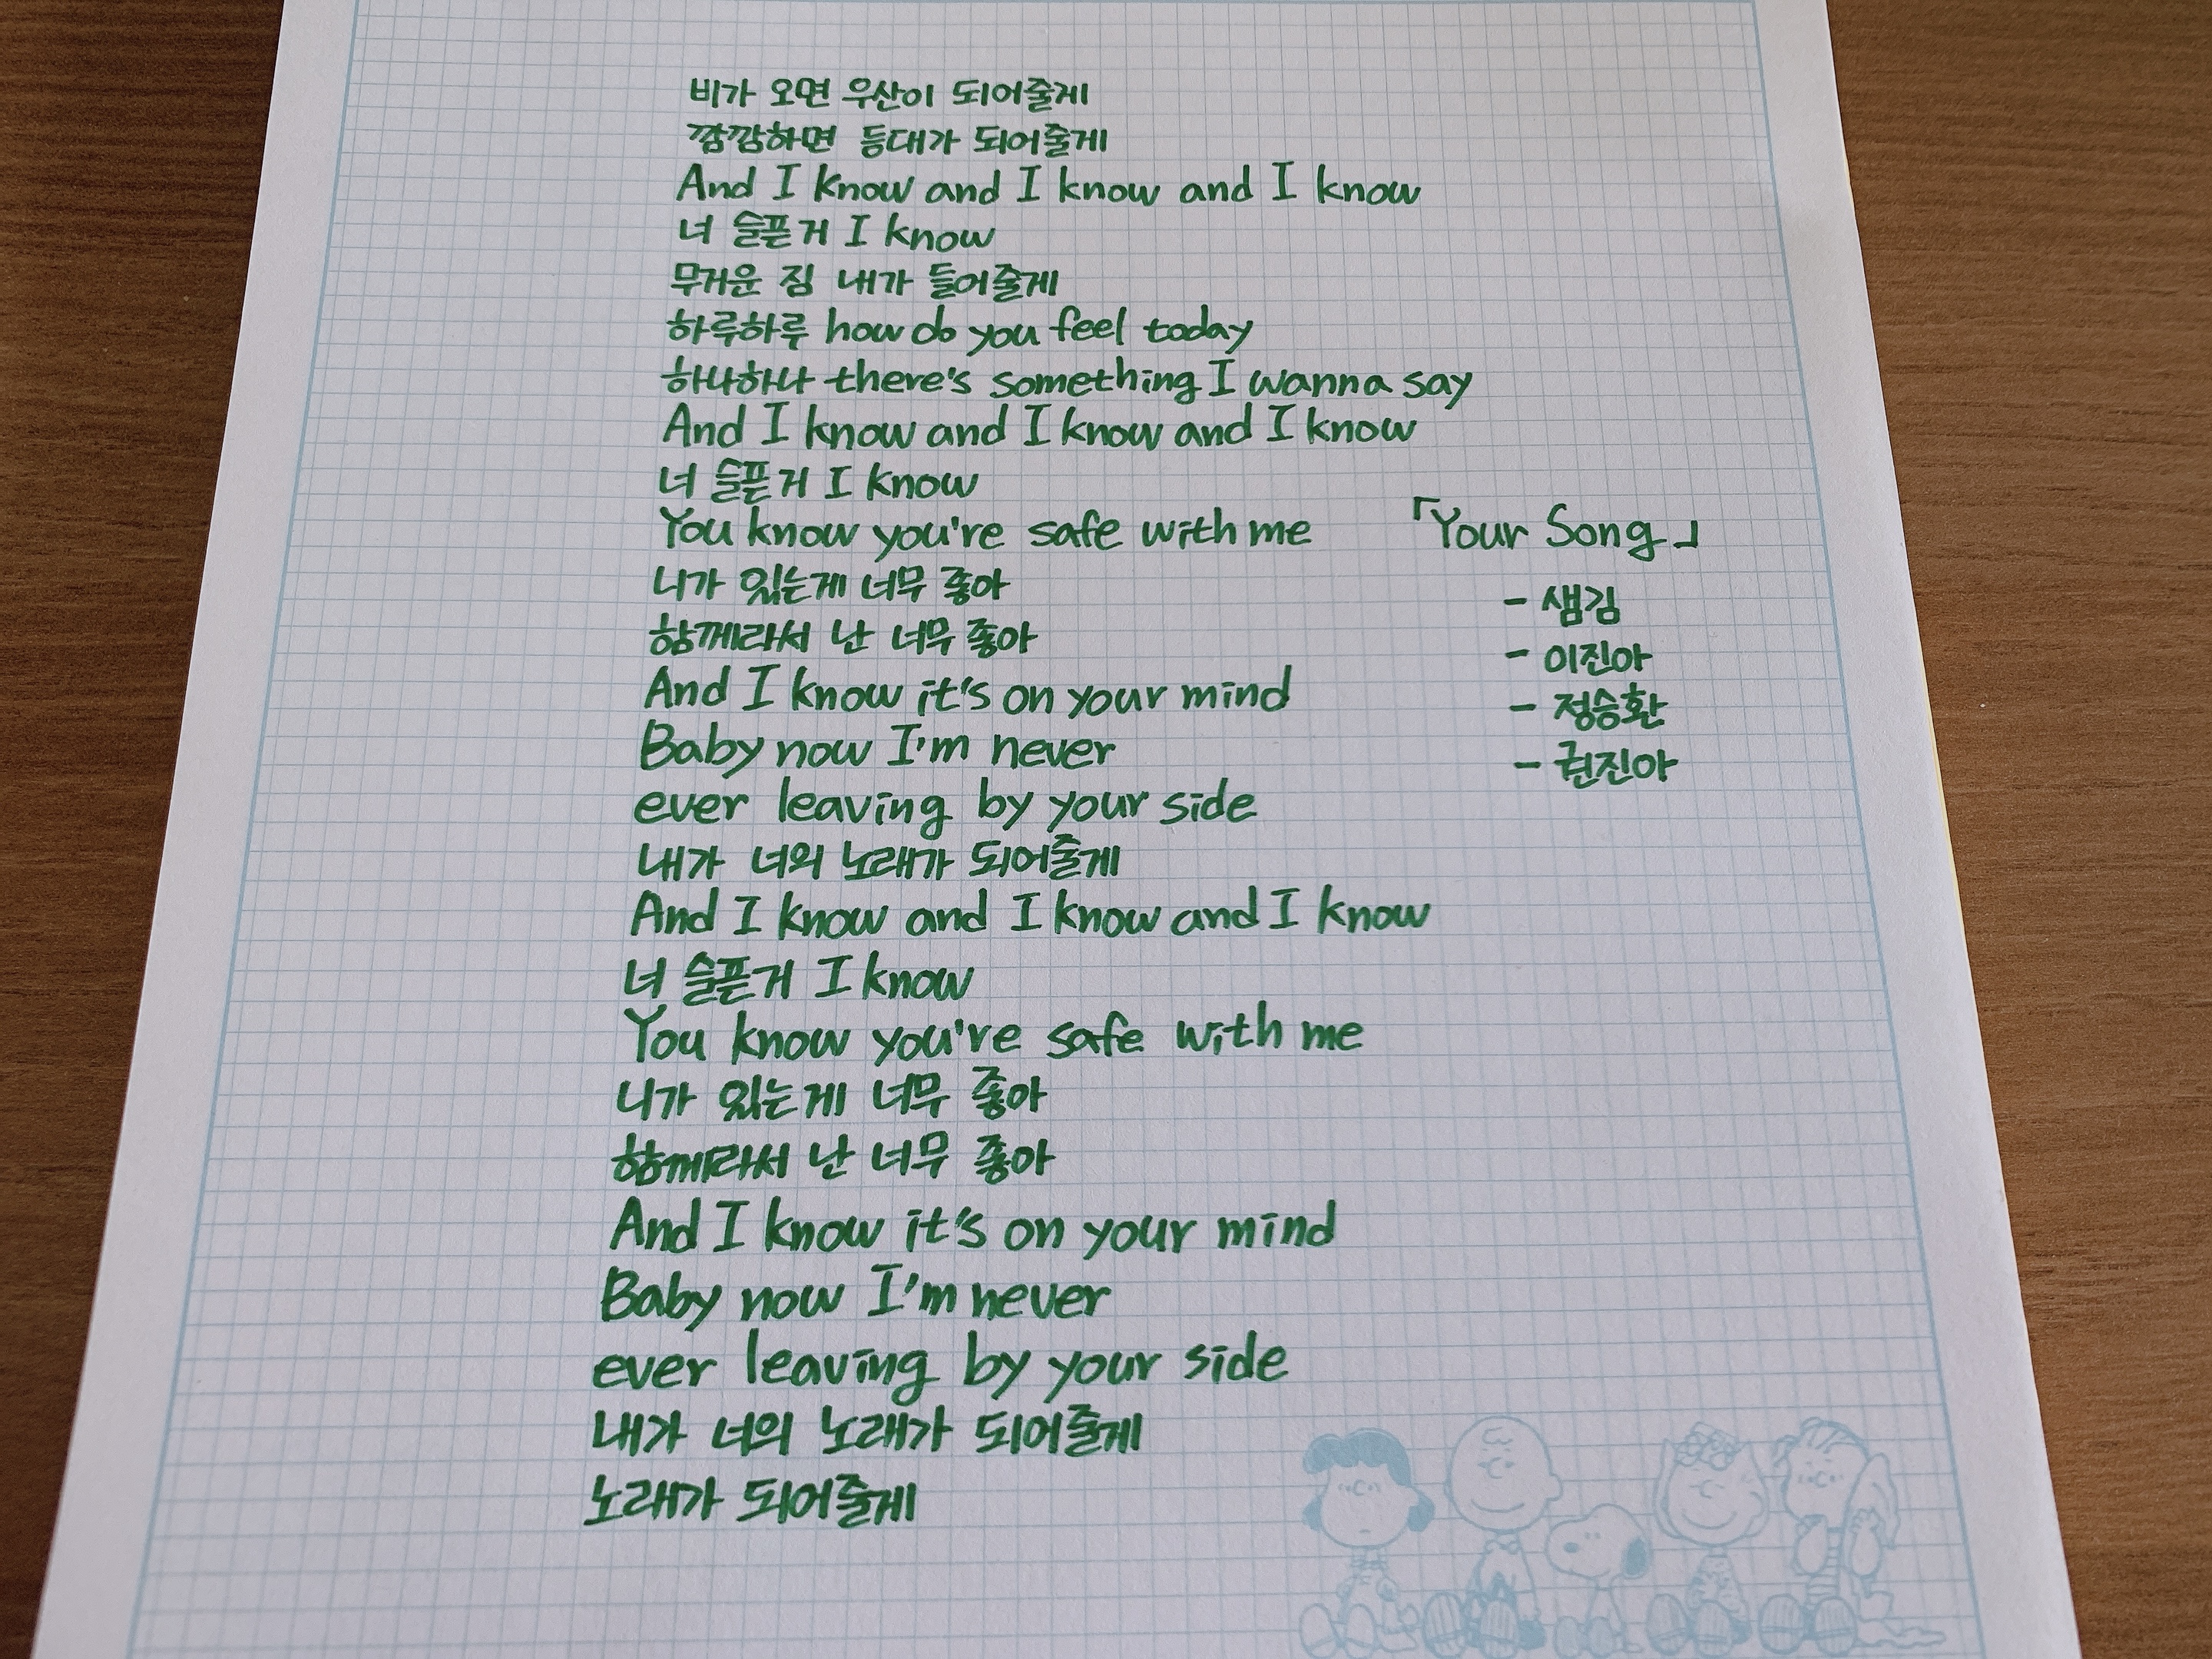 비가 오면 우산이 되어줄게
깜깜하면 등대가 되어줄게
And I know and I know and I know
너 슬픈거 I know
무거운 짐 내가 들어줄게
하루하루 how do you feel today
하나하나 there's something I wanna say
And I know and I know and I know
너 슬픈거 I know
You know you're safe with me
니가 있는게 너무 좋아
함께라서 난 너무 좋아
And I know it's on your mind
Baby now I'm never
ever leaving by your side
내가 너의 노래가 되어줄게
And I know and I know and I know
너 슬픈거 I know
You know you're safe with me
니가 있는게 너무 좋아
함께라서 난 너무 좋아
And I know it's on your mind
Baby now I'm never
ever leaving by your side
내가 너의 노래가 되어줄게
노래가 되어줄게
「Your Song」
- 샘김
- 이진아
- 정승환
- 권진아